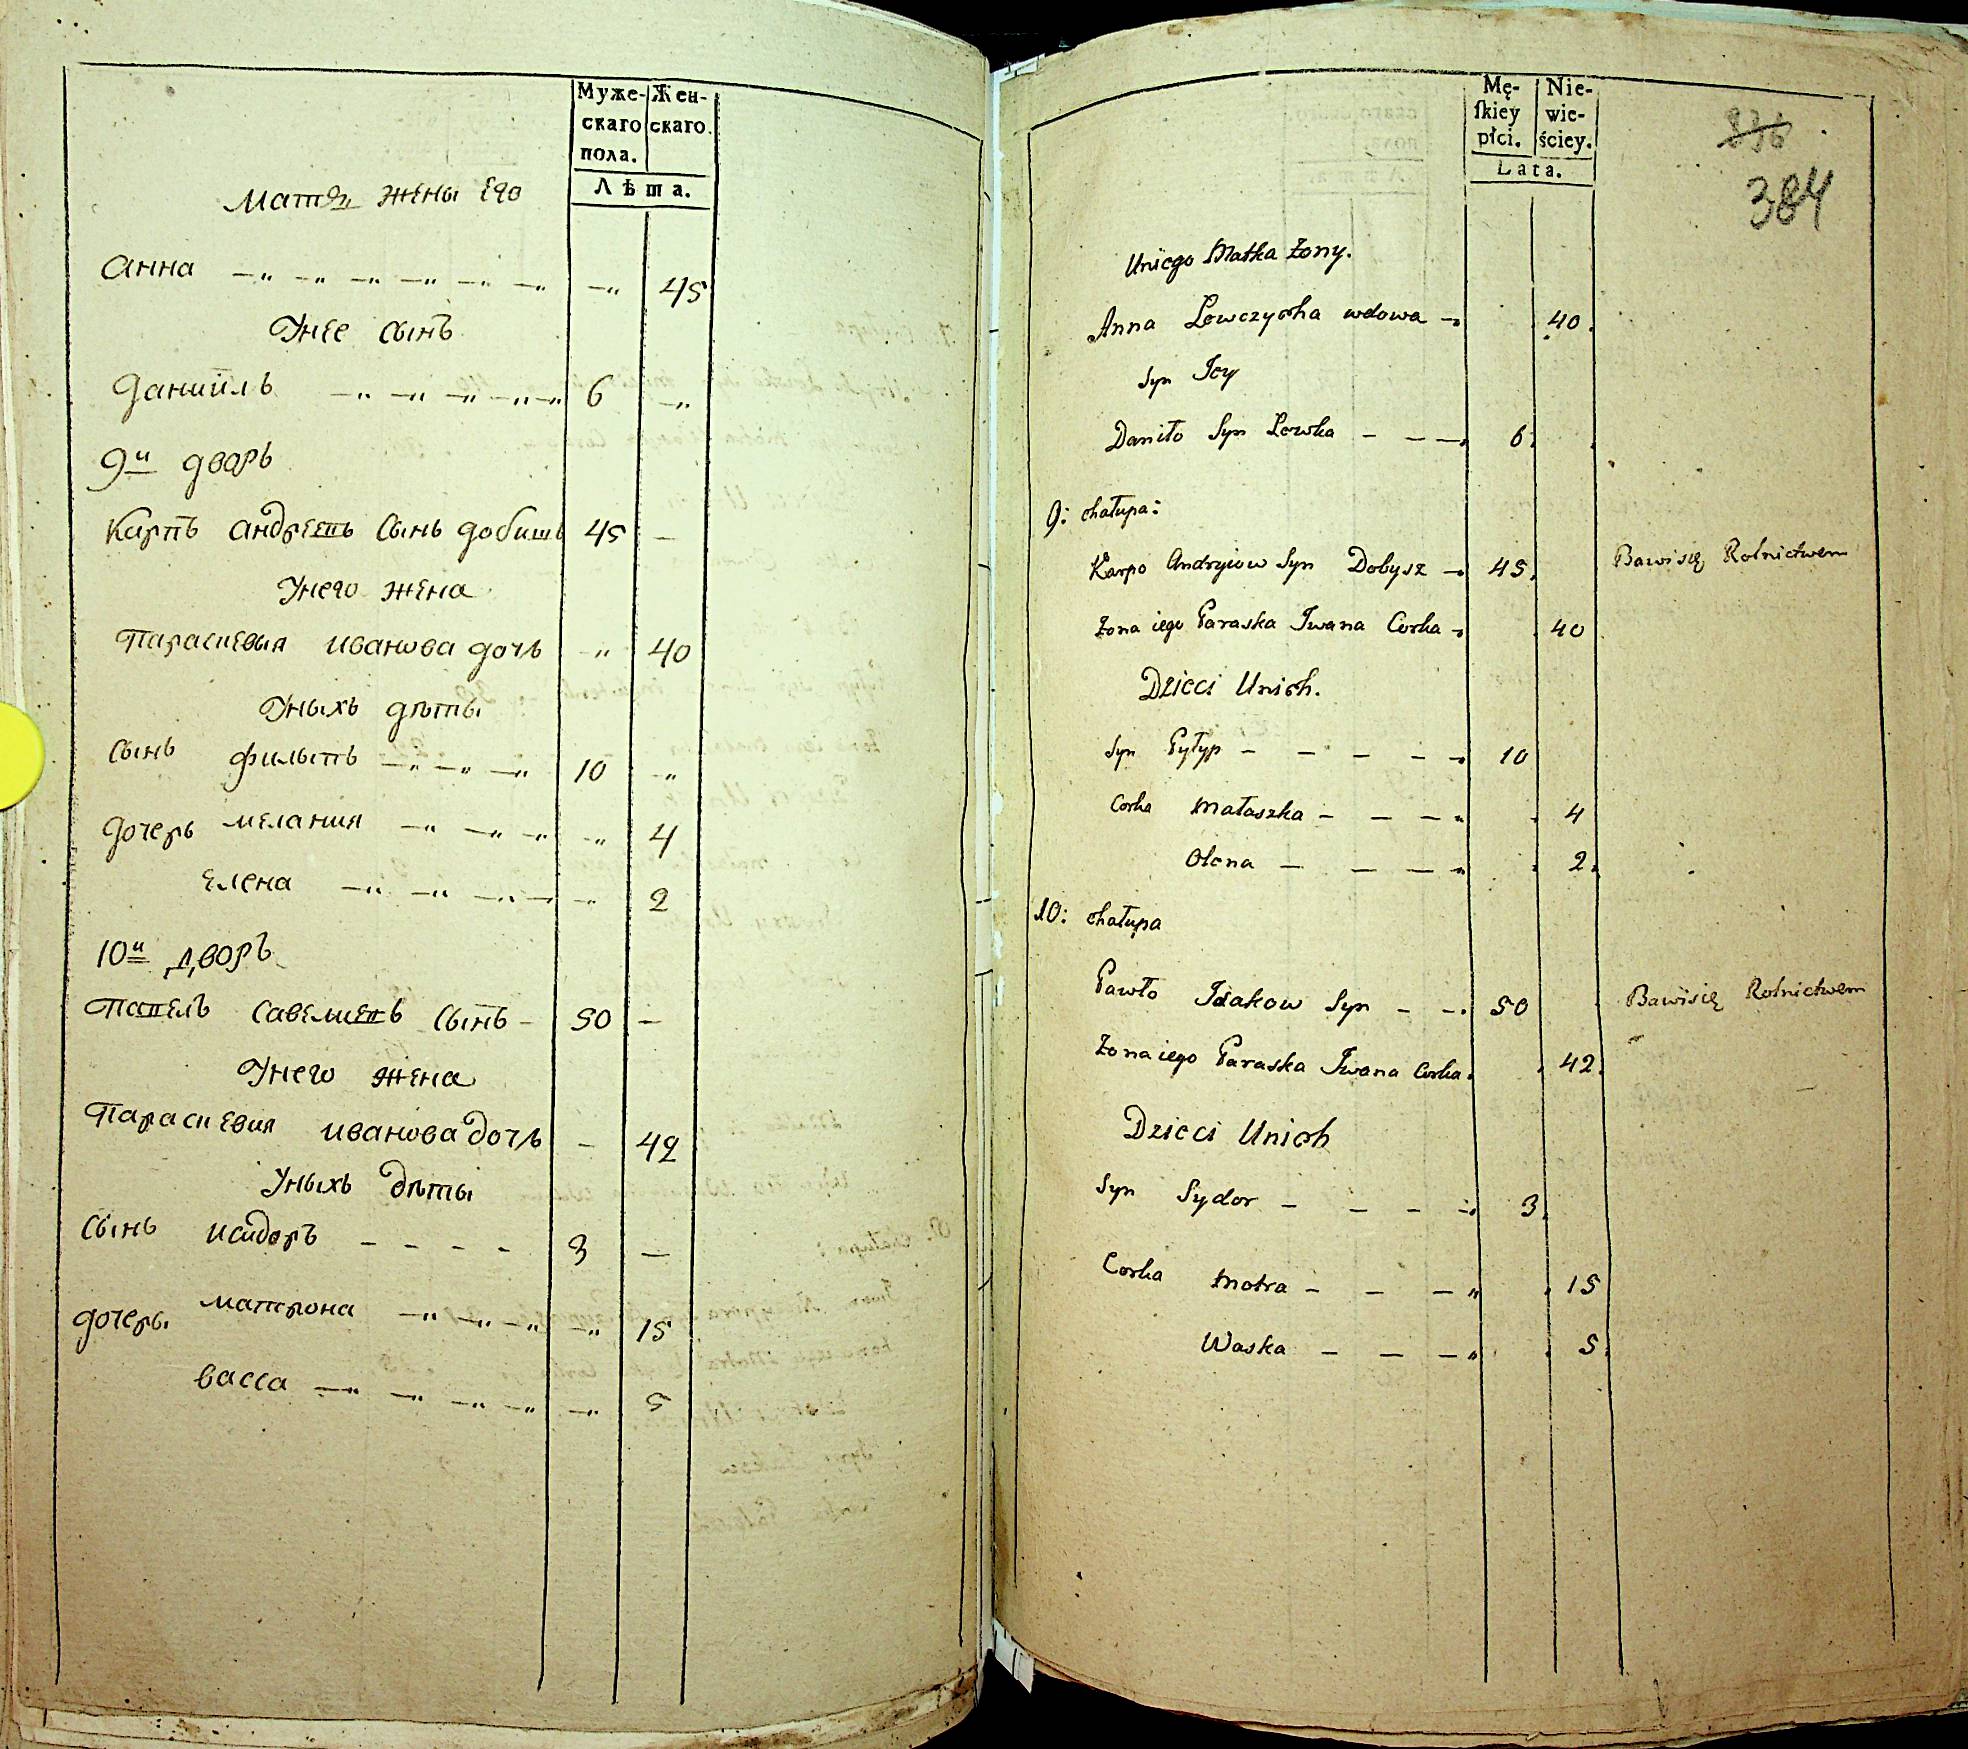 Муже-
скаго
пола.
Жен-
скаго.
Лѣта.
Матъ жены Его
Анна 45
Унее сынъ
Даниилъ 6
9й дворъ
Карпъ Андреевъ Сынъ Добишъ 45
Унего жена
Параскевия Иванова дочь 40
Уныхъ дѣты
Сынъ Филыпъ 10
Дочеръ Мелания 4
Елена 2
10й дворъ
Павелъ Савелиевъ Сынъ 50
Унего жена
Параскевия Иванова дочь 42
Уныхъ дѣты
Сынъ Исидоръ 3
Дочеры Матрона 15
Васса 5
Mę-
ſkiey
płci.
Nie-
wie-
ściey.
Lata.
836
384
Uniego Matka żony.
Anna Lewczycha wdowa 40
Syn Jey
Daniło Syn Lewka 6
9: chałupa:
Karpo Andryiow Syn Dobysz 45 Bawi się Rolnictwem
żona iego Paraska Iwana Corka 40
Dzieci Unich.
Syn Pyłyp 10
Corka Małaszka 4
Olena 2
10: chałupa
Pawło Isakow Syn 50 Bawi się Rolnictwem
żona iego Paraska Iwana Corka 42
Dzieci Unich
Syn Sydor 3
Corka Motra 15
Waska 5